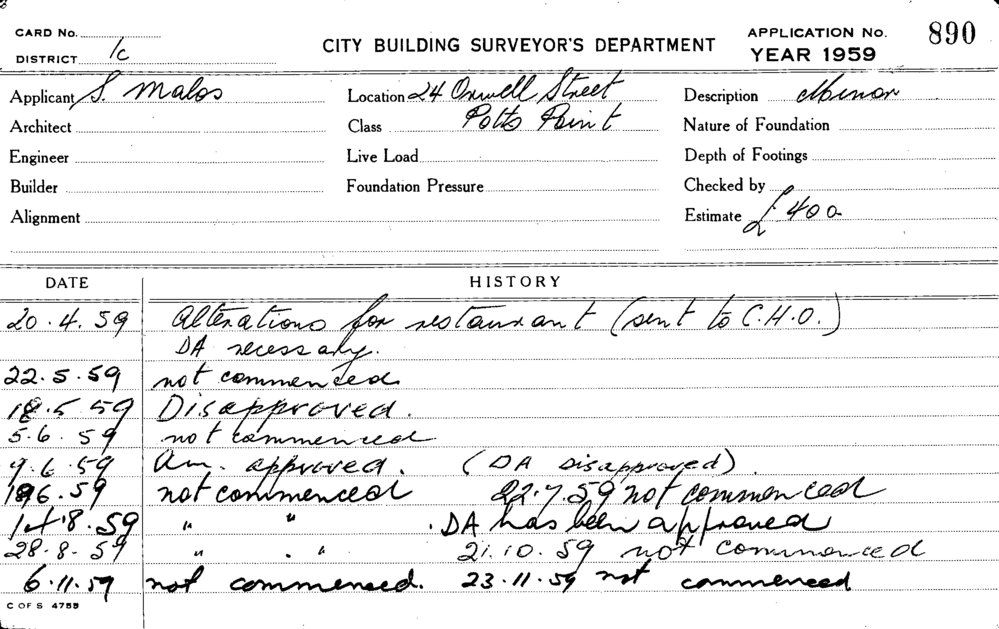 CARD No. CITY BUILDING SURVEYOR'S DEPARTMENT APPLICATION No. 890
DISTRICT 1c YEAR 1959
Applicant S. Malos Location 24 Orwell Street Description Minor
Architect Class Potts Point Nature of Foundation
Engineer Live Load Depth of Footings
Builder Foundation Pressure Checked by
Alignment Estimate £400
DATE HISTORY
20.4.59 Alterations for restaurant (sent to C.H.O.)
DA necessary.
22.5.59 not commenced
18.5.59 Disapproved.
5.6.59 not commenced
9.6.59 Am. approved. (DA disapproved).
6.59 not commenced 22.7.59 not commenced
14.8.59 " " . DA has been approved
28.8.59 " . " 21.10.59 not commenced
6.11.59 not commenced. 23.11.59 not commenced
C OF S 4755